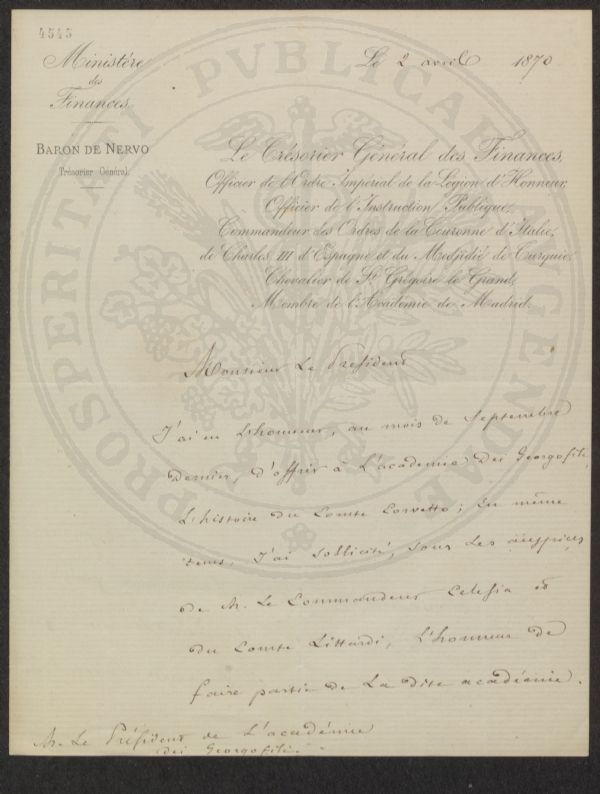 4545
Ministère
des
Finances.
BARON DE NERVO
Trésorier Général.
Le 2 avril 1870
Le Trésorier Général des Finances,
Officier de l'Ordre Impérial de la Légion d'Honneur,
Officier de l'Instruction Publique,
Commandeur des Ordres de la Couronne d'Italie,
de Charles III d'Espagne et du Medjidié de Turquie,
Chevalier de St. Grégoire le Grand,
Membre de l'Académie de Madrid.
Monsieur Le Président
J'ai eu L'honneur, au mois de Septembre
Dernier, d'offrir à L'academie Dei Georgofili,
L'histoire du Comte Corvetto; En même
tems, J'ai Sollicité, sous Les auspices
De Mr. Le Commandeur Celesia et
Du Comte Littardi, L'honneur de
faire partie de La Dite académie.
Mr. Le Président de L'académie
dei Georgofili.
PROSPERITATI PVBLICAE AVGENDAE